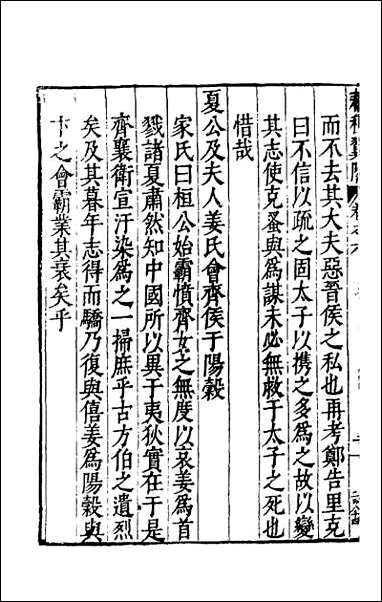 而不去其大夫惡晉侯之私也再考鄭告里克
曰不信以疏之固太子以携之多為之故以變
其志使克蚤與為謀未必無救于太子之死也
惜哉
夏公及夫人姜氏會齊侯于陽穀
家氏曰桓公始霸憤齊女之無度以哀姜為首
戮諸夏肅然知中國所以異于夷狄實在于是
齊襄衛宣汙染為之一掃庶乎古方伯之遺烈
矣及其暮年志得而驕乃復與僖姜為陽穀與
卞之會霸業其衰矣乎